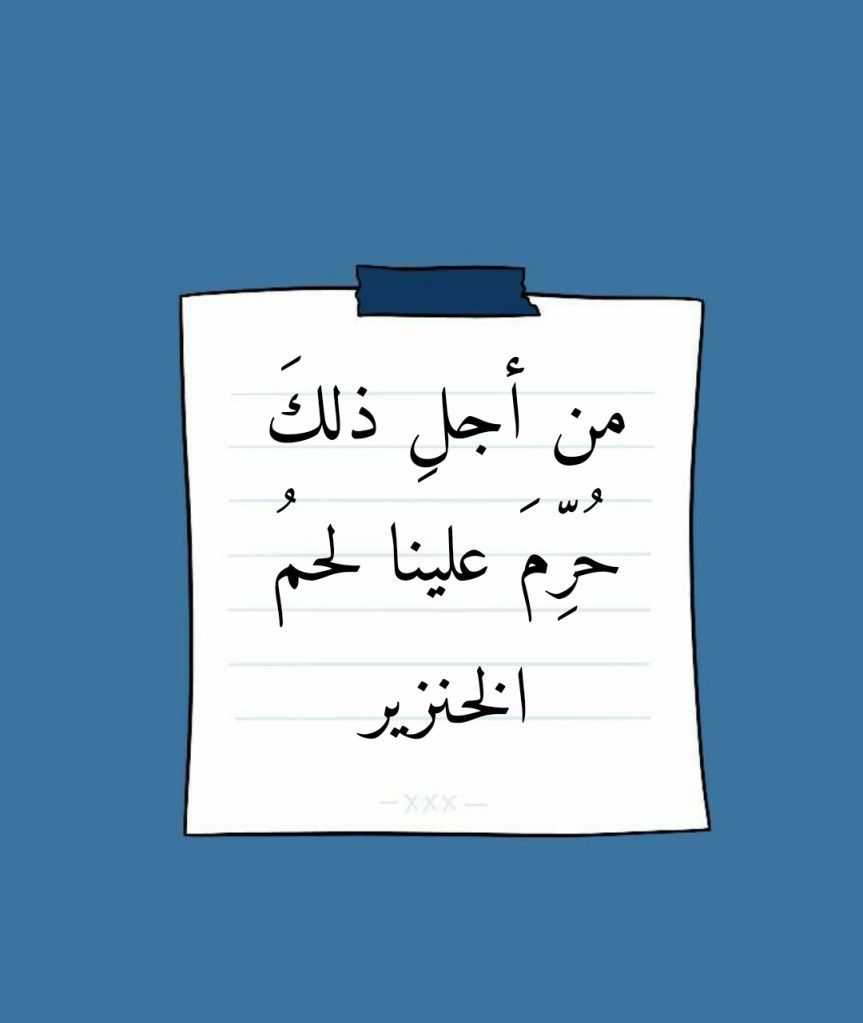 من أجلِ ذلكَ
حُرِّمَ علينا لحمُ
الخنزير
—xxx—